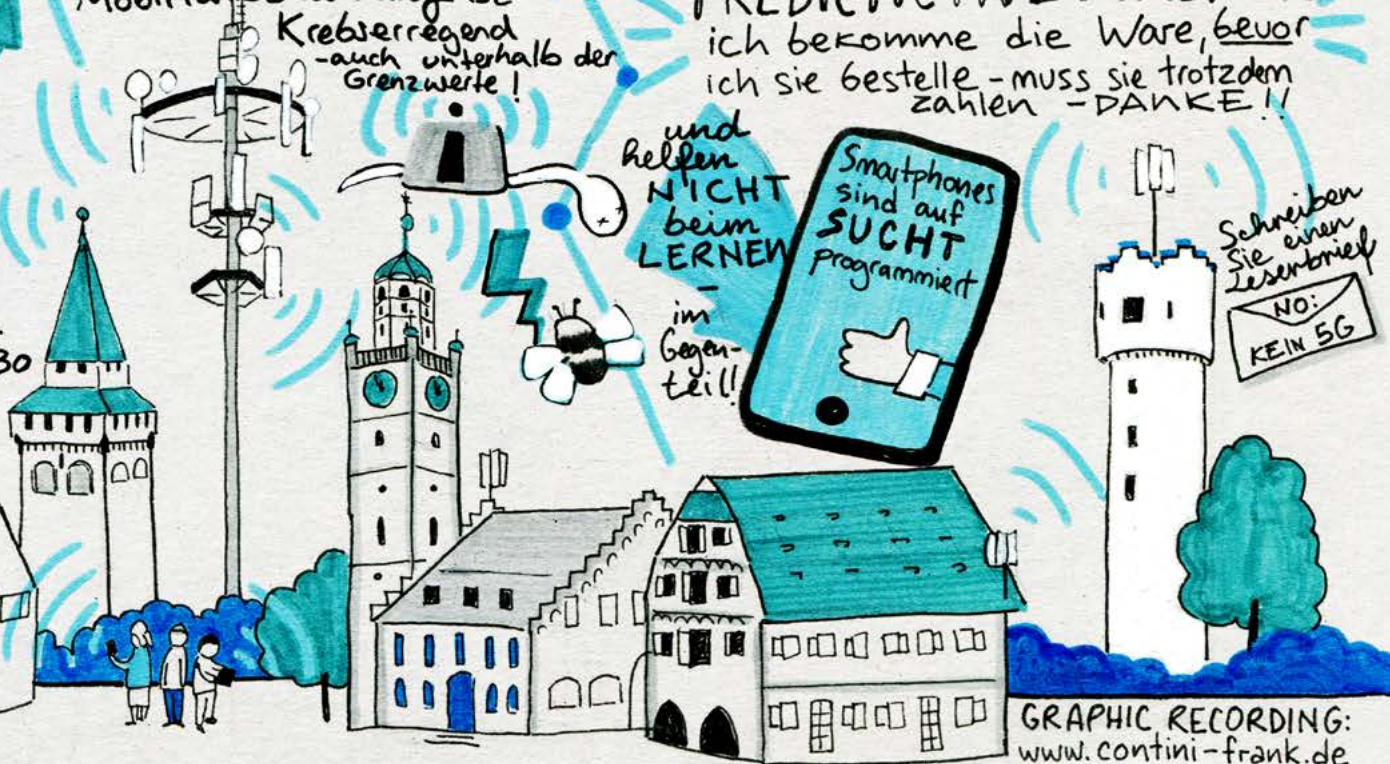 Krebserregend
-auch unterhalb der
Grenzwerte!
ich bekomme die Ware, bevor
ich sie bestelle - muss sie trotzdem
zahlen - DANKE!!
und
helfen
NICHT
beim
LERNEN
-
im
Gegen-
teil!!
Smartphones
sind auf
SUCHT
programmiert
Schreiben
Sie einen
Leserbrief
NO:
KEIN 5G
30
GRAPHIC RECORDING:
www.contini-frank.de